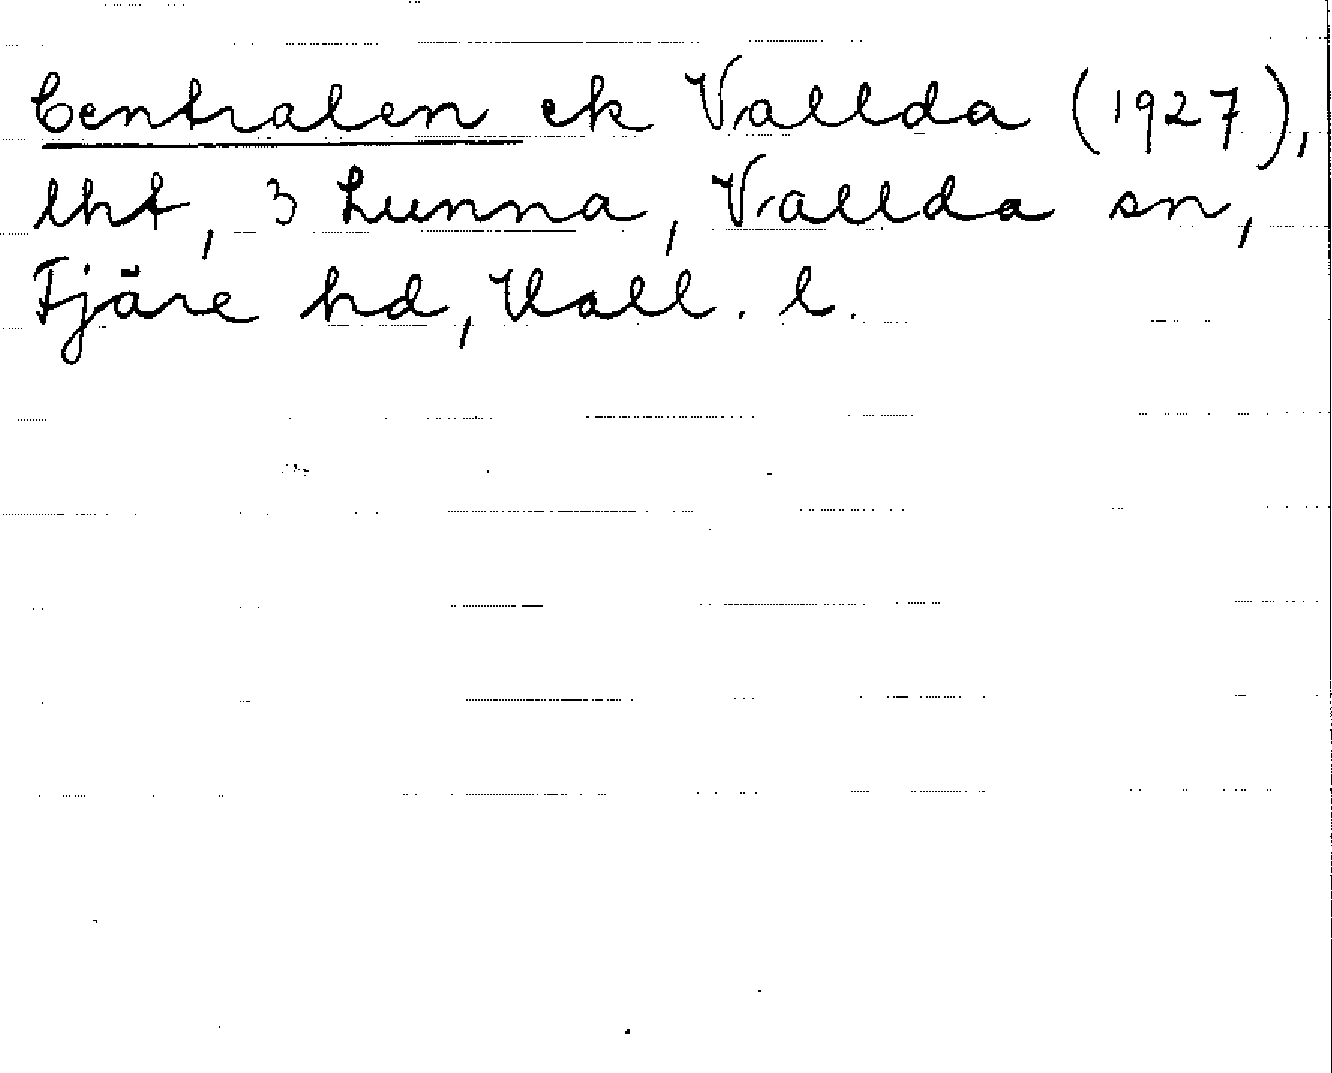 Centralen ek Vallda (1927),
lht, 3 Lunna, Vallda sn,
Fjäre hd, Hall. l.